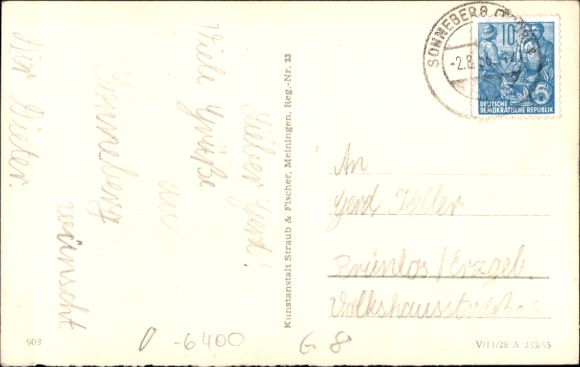 Lieber Gerd!
Viele Grüße
aus
Sonneberg
wünscht
Dir Dieter.
Kunstanstalt Straub & Fischer, Meiningen, Reg.-Nr. 23
SONNEBERG (THÜR)
-2.8.
10
5
DEUTSCHE
DEMOKRATISCHE REPUBLIK
An
Gerd Köller
Brünlos/Erzgeb.
Volkshausstraße
903
0 -6400
G-8
V/11/28 A 233/55